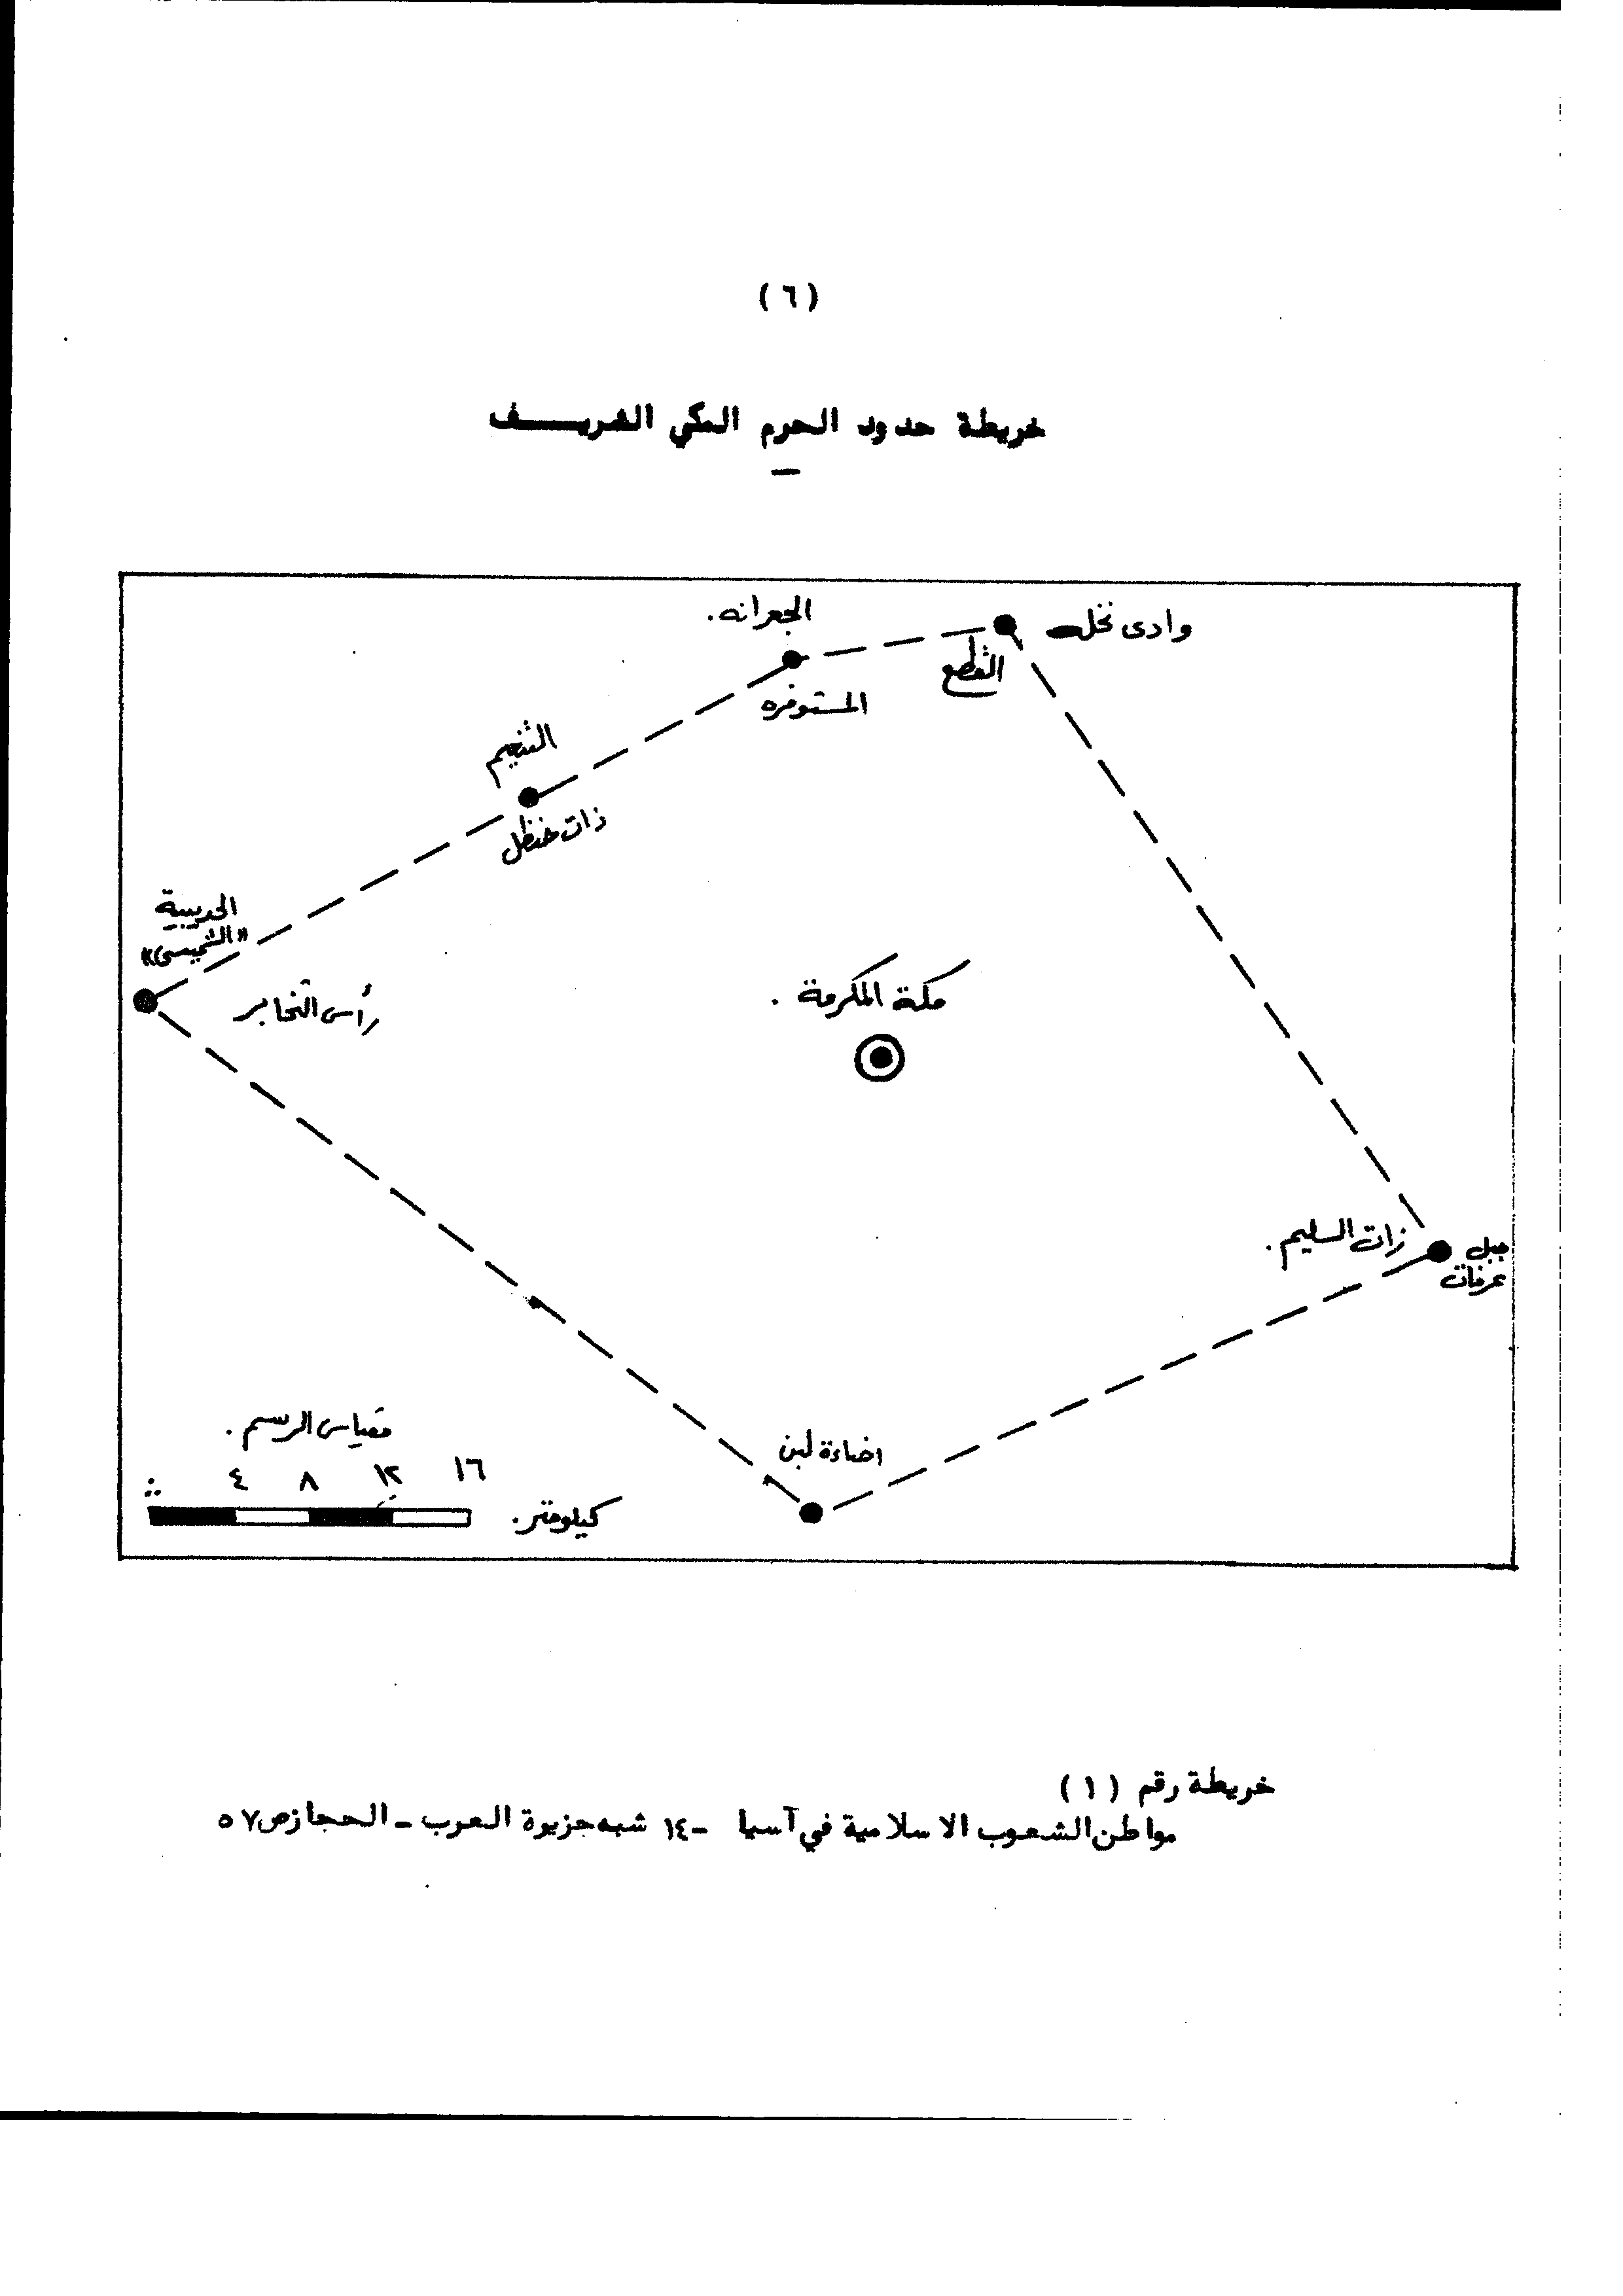 (٦)
خريطة حدود الحرم المكي الشريف
الجعرانه.
وادى نخل
القطع
المستوفره
التنعيم
ذات حنظل
الحديبية
«الشميسى»
رأس التخابر
مكة المكرمة.
ذات السليم.
جبل
عرفات
اضاءة لبن
مقياس الرسم.
٤ ٨ ١٢ ١٦
كيلومتر.
خريطة رقم (١)
مواطن الشعوب الاسلامية في آسيا -١٤ شبه جزيرة العرب - الحجاز ص٥٧